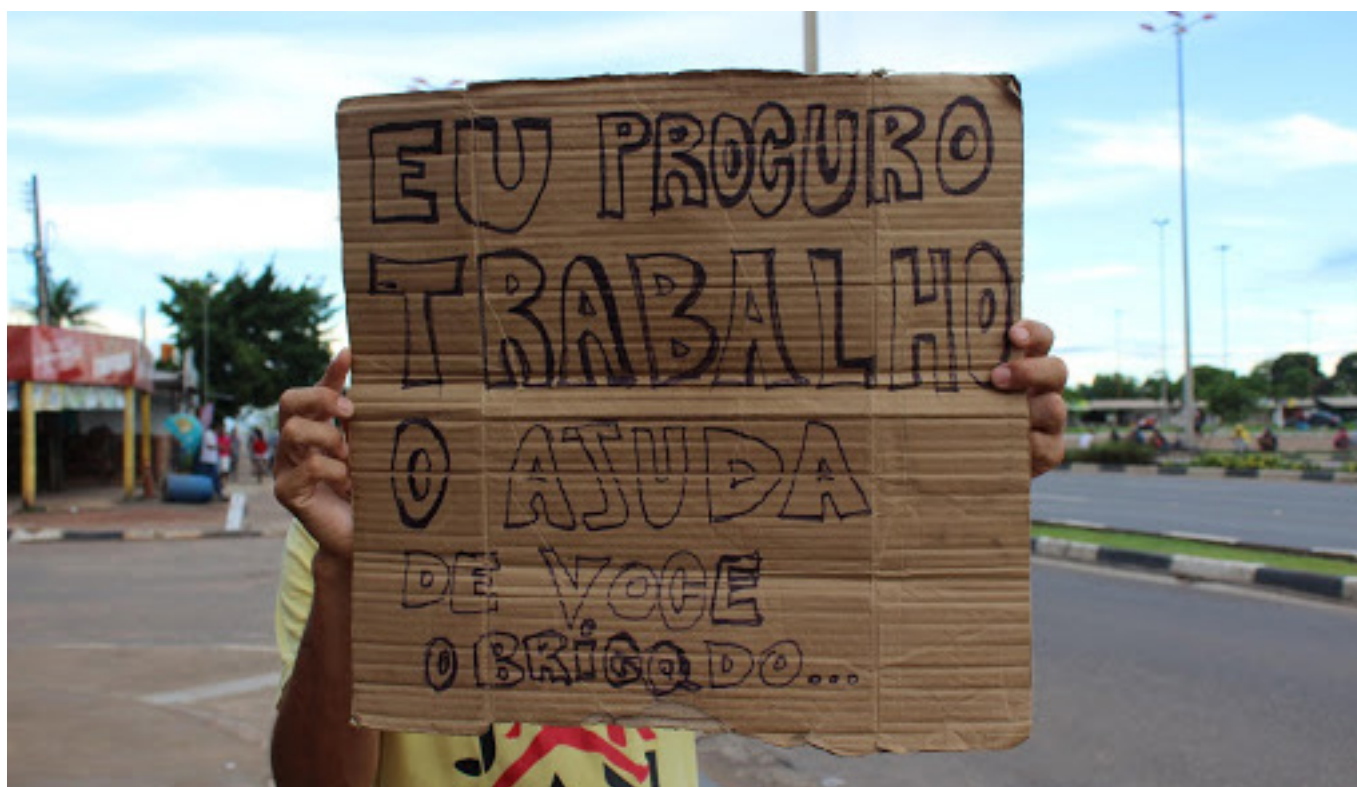 EU PROCURO
TRABALHO
O AJUDA
DE VOCE
OBRIGADO...